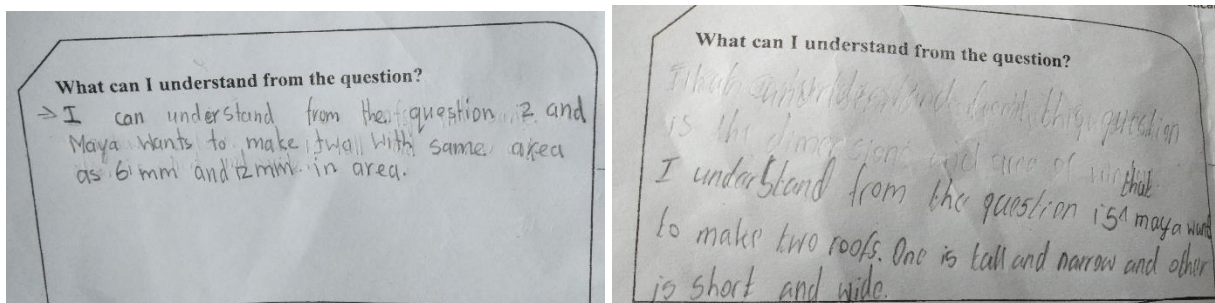 What can I understand from the question?
→ I can understand from the question 2 and
Maya wants to make twall with same area
as 6 mm and 12 mm in area.
What can I understand from the question?
understand from this question
is the dimension and area of
that
I understand from the question is^ maya want
to make two roofs. One is tall and narrow and other
is short and wide.